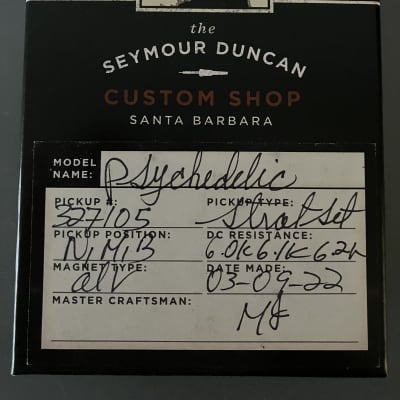 the
SEYMOUR DUNCAN
CUSTOM SHOP
SANTA BARBARA
MODEL NAME: Psychedelic
PICKUP #: 327105 PICKUP TYPE: Strat Set
PICKUP POSITION: N, M, B DC RESISTANCE: 6.0K 6.1K 6.2K
MAGNET TYPE: alV DATE MADE: 03-09-22
MASTER CRAFTSMAN: MJ